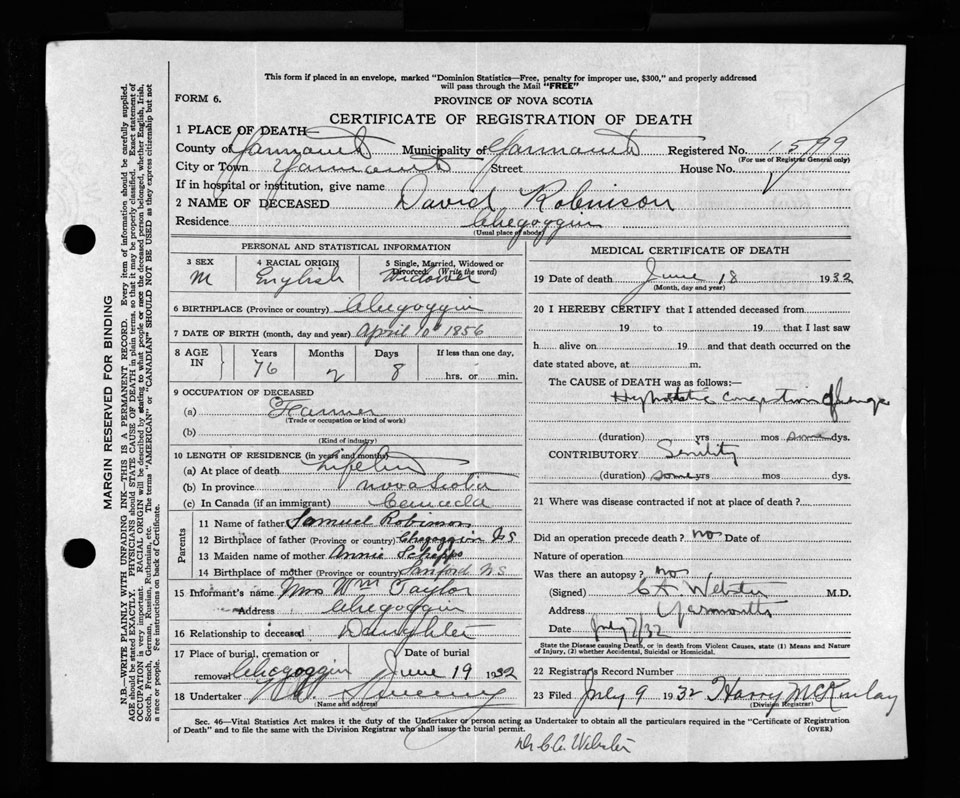 This form if placed in an envelope, marked "Dominion Statistics—Free, penalty for improper use, $300," and properly addressed
will pass through the Mail "FREE"
FORM 6.
PROVINCE OF NOVA SCOTIA
CERTIFICATE OF REGISTRATION OF DEATH
1 PLACE OF DEATH—
County of Yarmouth Municipality of Yarmouth Registered No. 1599
(For use of Registrar General only)
City or Town Yarmouth Street House No.
If in hospital or institution, give name
2 NAME OF DECEASED David Robinson
Residence Chegoggin
(Usual place of abode)
PERSONAL AND STATISTICAL INFORMATION
3 SEX 4 RACIAL ORIGIN 5 Single, Married, Widowed or Divorced. (Write the word)
M English Widower
6 BIRTHPLACE (Province or country) Chegoggin
7 DATE OF BIRTH (month, day and year) April 10th 1856
8 AGE IN Years Months Days If less than one day,
76 2 8 hrs. or min.
9 OCCUPATION OF DECEASED
(a) Farmer
(Trade or occupation or kind of work)
(b)
(Kind of industry)
10 LENGTH OF RESIDENCE (in years and months)
(a) At place of death Lifetime
(b) In province Nova Scotia
(c) In Canada (if an immigrant) Canada
Parents
11 Name of father Samuel Robinson
12 Birthplace of father (Province or country) Chegoggin N S
13 Maiden name of mother Annie
14 Birthplace of mother (Province or country) Sanford N S
15 Informant's name Mrs Wm Taylor
Address Chegoggin
16 Relationship to deceased Daughter
17 Place of burial, cremation or removal Date of burial
Chegoggin June 19 1932
18 Undertaker Sweeny
(Name and address)
MEDICAL CERTIFICATE OF DEATH
19 Date of death June 18 1932
(Month, day and year)
20 I HEREBY CERTIFY that I attended deceased from
19 to 19 that I last saw
h alive on 19 and that death occurred on the
date stated above, at m.
The CAUSE OF DEATH was as follows:—
Hypostatic congestion of lungs
(duration) yrs mos some dys.
CONTRIBUTORY Senility
(duration) some yrs mos dys.
21 Where was disease contracted if not at place of death?
Did an operation precede death? no Date of
Nature of operation
Was there an autopsy? no
(Signed) C A Webster M.D.
Address Yarmouth
Date July 7/32
State the Disease causing Death, or in death from Violent Causes, state (1) Means and Nature
of Injury, (2) whether Accidental, Suicidal or Homicidal.
22 Registrar's Record Number
23 Filed July 9 1932 Harry McKinlay
(Division Registrar)
Sec. 46—Vital Statistics Act makes it the duty of the Undertaker or person acting as Undertaker to obtain all the particulars required in the "Certificate of Registration
of Death" and to file the same with the Division Registrar who shall issue the burial permit.
(OVER)
Dr C A Webster
MARGIN RESERVED FOR BINDING
N.B.—WRITE PLAINLY WITH UNFADING INK—THIS IS A PERMANENT RECORD. Every item of information should be carefully supplied.
AGE should be stated EXACTLY. PHYSICIANS should STATE CAUSE OF DEATH in plain terms, so that it may be properly classified. Exact statement of
OCCUPATION is very important. RACIAL ORIGIN will be described by stating to what people or race the deceased person belonged, whether English, Irish,
Scotch, French, German, Russian, Ruthenian, etc. The terms "AMERICAN" or "CANADIAN" SHOULD NOT BE USED as they express citizenship but not
a race or people. See instructions on back of Certificate.